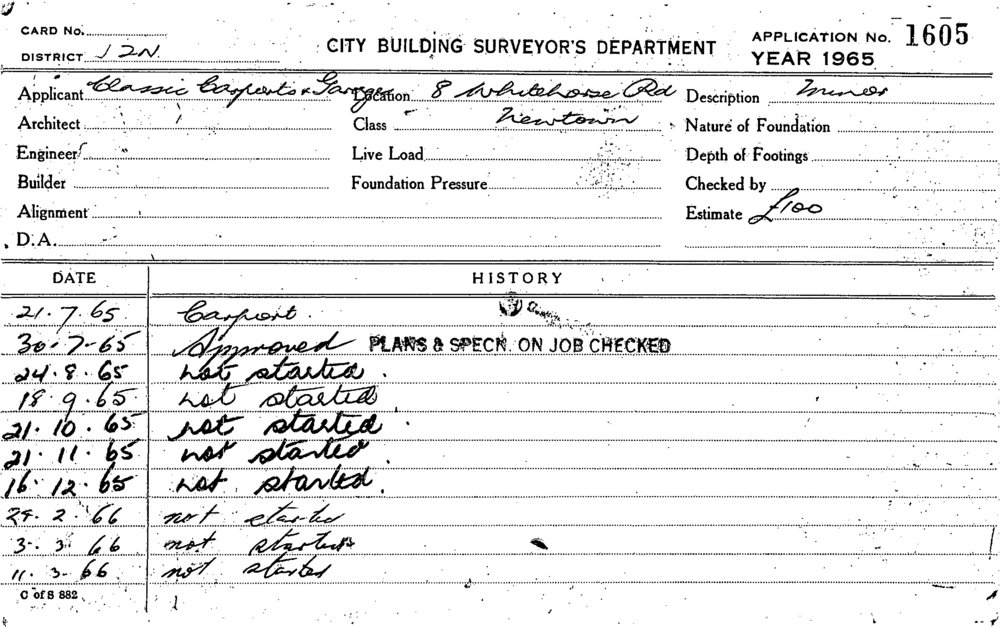 CARD No.
DISTRICT 12N.
CITY BUILDING SURVEYOR'S DEPARTMENT
APPLICATION No. 1605
YEAR 1965
Applicant Classic Carports & Garages Location 8 Whitehorse Rd Description Minor
Architect Class Newtown Nature of Foundation
Engineer Live Load Depth of Footings
Builder Foundation Pressure Checked by
Alignment Estimate £100
D.A.
DATE HISTORY
21.7.65 Carport.
30.7-65 Approved PLANS & SPECN. ON JOB CHECKED
24.8.65 not started.
18.9.65 not started
21.10.65 not started
21.11.65 not started
16.12.65 not started.
2.66 not started
3.3.66 not started
11.3.66 not started
C of S 882